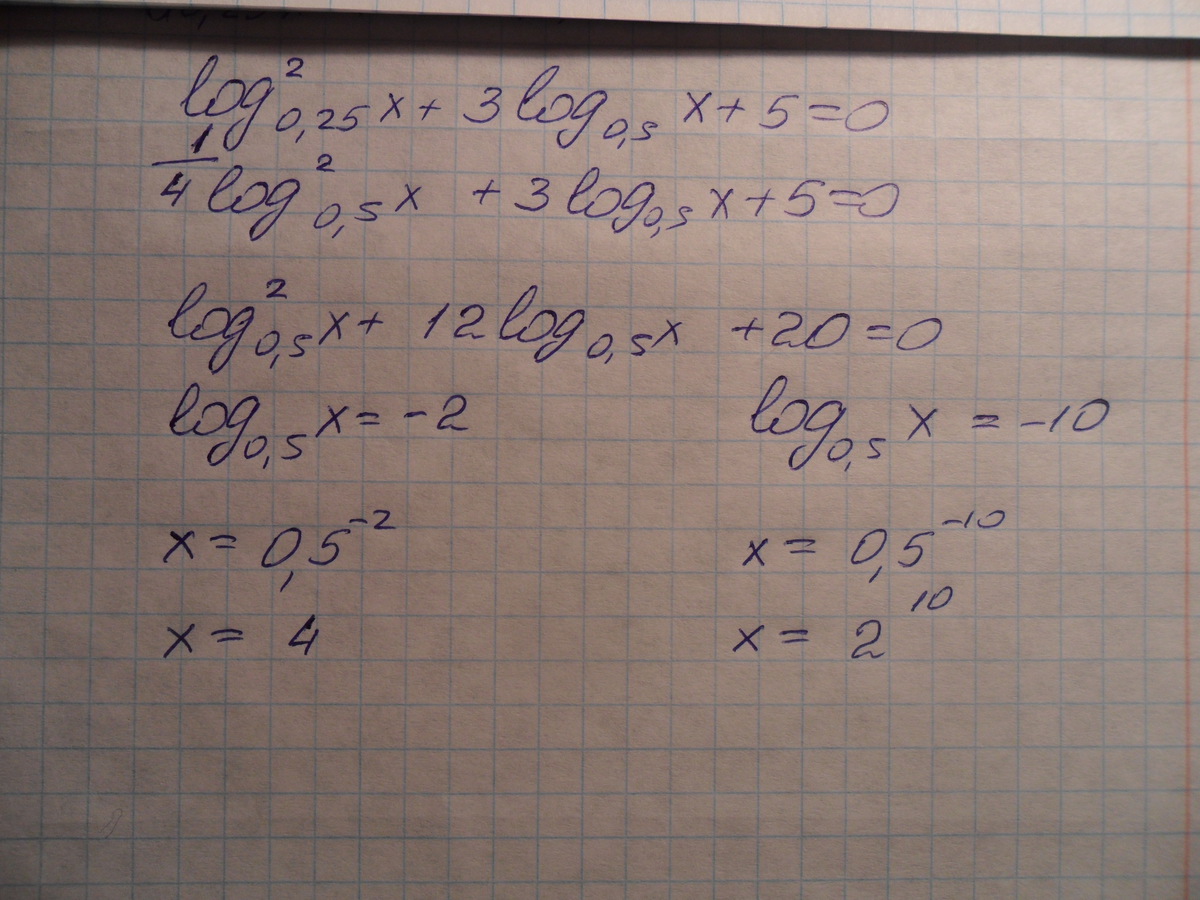 log²₀,₂₅ x + 3 log₀,₅ x + 5 = 0
1/4 log²₀,₅ x + 3 log₀,₅ x + 5 = 0
log²₀,₅ x + 12 log₀,₅ x + 20 = 0
log₀,₅ x = -2 log₀,₅ x = -10
x = 0,5⁻² x = 0,5⁻¹⁰
x = 4 x = 2¹⁰